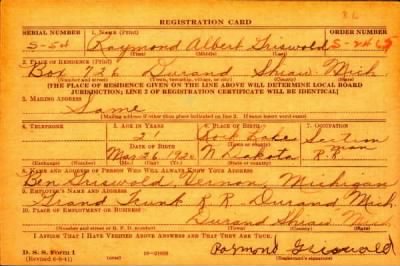 REGISTRATION CARD
SERIAL NUMBER 1. NAME (Print) ORDER NUMBER
S-54 Raymond Albert Griswold S-246
(First) (Middle) (Last)
2. PLACE OF RESIDENCE (Print)
Box 726 Durand Shiaw Mich
(Number and street) (Town, township, village, or city) (County) (State)
[THE PLACE OF RESIDENCE GIVEN ON THE LINE ABOVE WILL DETERMINE LOCAL BOARD
JURISDICTION; LINE 2 OF REGISTRATION CERTIFICATE WILL BE IDENTICAL]
3. MAILING ADDRESS
Same
[Mailing address if other than place indicated on line 2. If same insert word same]
4. TELEPHONE 5. AGE IN YEARS 6. 7. OCCUPATION
21 Lake
DATE OF BIRTH
Mar 26 1920 N Dakota R.R.
(Exchange) (Number) (Mo.) (Day) (Yr.)
8. NAME AND ADDRESS OF PERSON WHO WILL ALWAYS KNOW YOUR ADDRESS
Ben Griswold, Vernon, Michigan
9. EMPLOYER'S NAME AND ADDRESS
Grand Trunk R R. Durand Mich.
10. PLACE OF EMPLOYMENT OR BUSINESS
Durand Shiaw Mich
(Number and street or R. F. D. number) (Town) (County) (State)
I AFFIRM THAT I HAVE VERIFIED ABOVE ANSWERS AND THAT THEY ARE TRUE.
D. S. S. Form 1 Raymond Griswold
(Revised 6-9-41) (Registrant's signature)